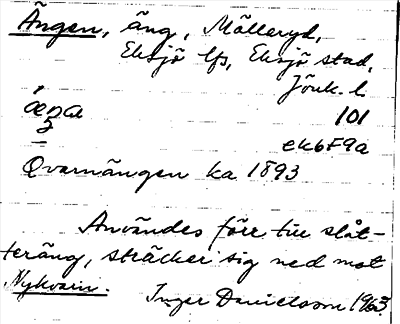 Ängen, äng, Mälleryd,
Eksjö lfs, Eksjö stad,
Jönk. l.
101
ek6F9a
Qvarnängen ka 1893
Användes förr till slåt-
teräng, sträcker sig ned mot
Nykvarn. Inger Danielsson 1963